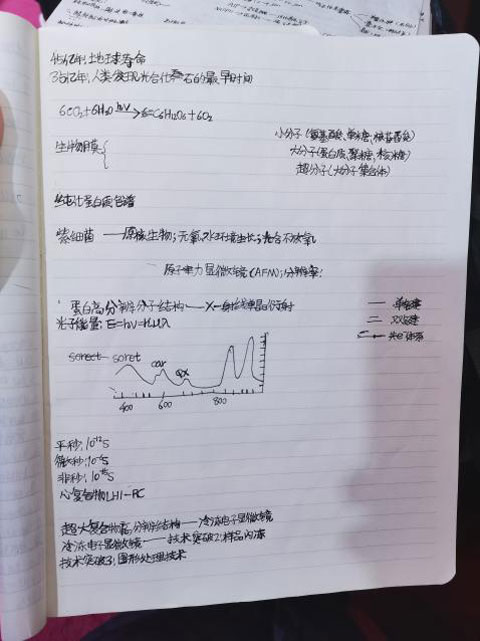 45亿年:地球寿命
35亿年:人类发现光合化石的最早时间
6CO₂+6H₂O hν→ C₆H₁₂O₆+6O₂
生物膜{
小分子(氨基酸、单糖、核苷酸)
大分子(蛋白质、聚糖、核糖)
超分子(大分子集合体)
纯化蛋白质色谱
紫细菌——原核生物;无氧水环境生长;光合不放氧
原子力显微镜(AFM):分辨率:
蛋白高分辨分子结构——X-射线单晶衍射
光子能量:E=hν=hc/λ
— 单键
二 双键
soret soret
car
Qx
400 600 800
皮秒:10⁻¹²S
微秒:10⁻⁶S
非秒:10⁻¹⁵S
心复合物LH1-RC
超大复合物高分辨结构——冷冻电子显微镜
冷冻电子显微镜——技术突破2:样品闪冻
技术突破3:图形处理技术